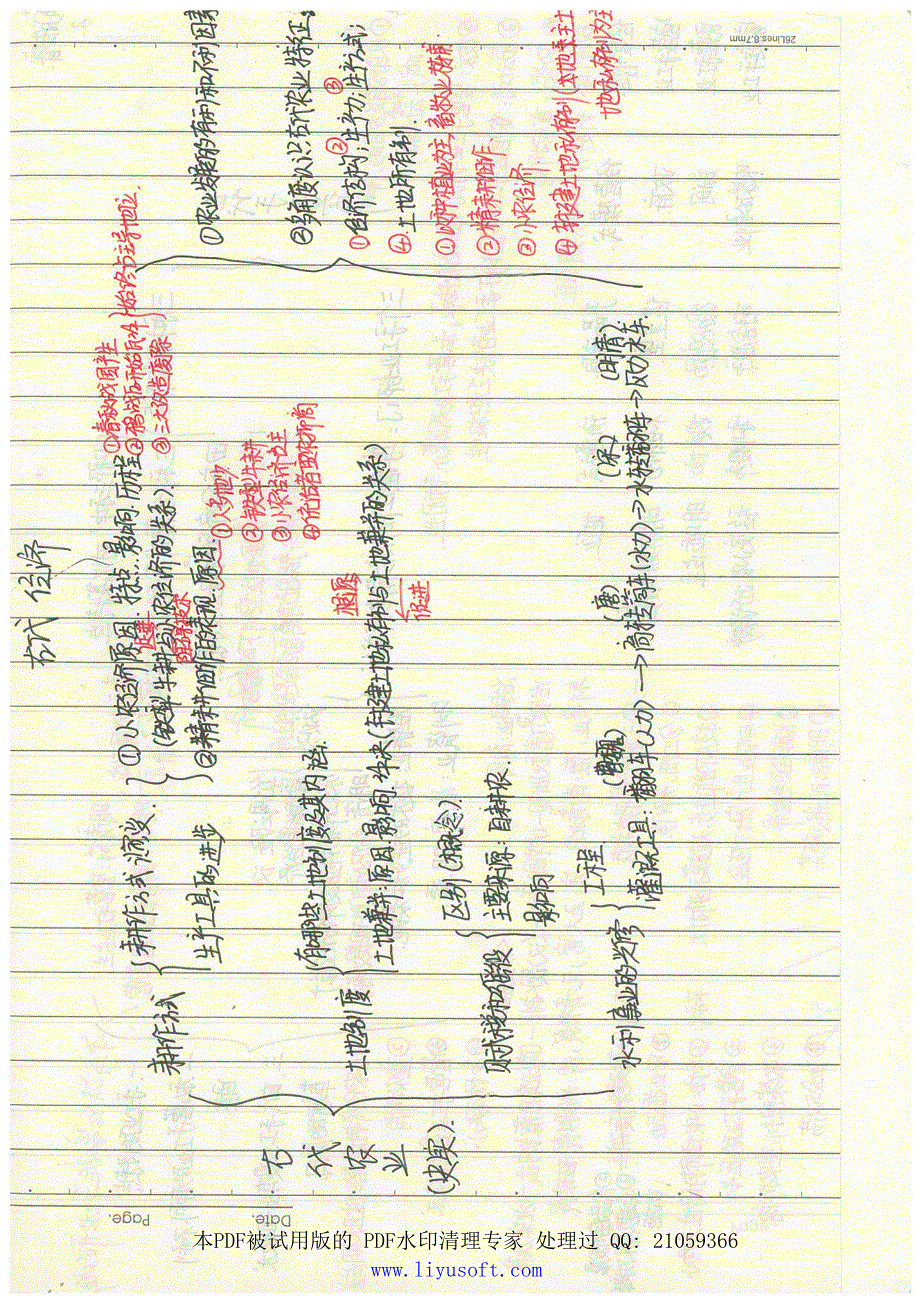 古代经济
古代农业
(史实).
耕作方式
耕作方式演变.
生产工具的进步
①小农经济原因.特点.影响.历程
①春秋战国产生
②鸦战后开始瓦解
③三大改造废除
始终占主导地位.
(铁犁牛耕与小农经济的关系).
促进
②精耕细作的表现.原因.
①人多地少
②铁犁牛耕
③小农经济为主
④统治者重农抑商
土地制度
有哪些土地制度及其内涵.
土地兼并:原因.影响.
(封建土地私有制与土地兼并的关系)
根源
促进
赋税和徭役
区别(概念).
主要来源:自耕农.
影响
水利事业的兴修
工程
灌溉工具:翻车(人力)→高转筒车(水力)→水转翻车→风力水车.
(曹魏) (唐) (宋) (明清)
①农业发展的有利和不利因素
②多角度认识古代农业特征:
①经济结构;②生产力;③生产方式;
④土地所有制.
①以种植业为主,畜牧业为辅
②精耕细作.
③小农经济.
④封建土地私有制(以地主土地私有制为主
26Lines:8.7mm
Page.
Date.
本PDF被试用版的 PDF水印清理专家 处理过 QQ: 21059366
www.liyusoft.com